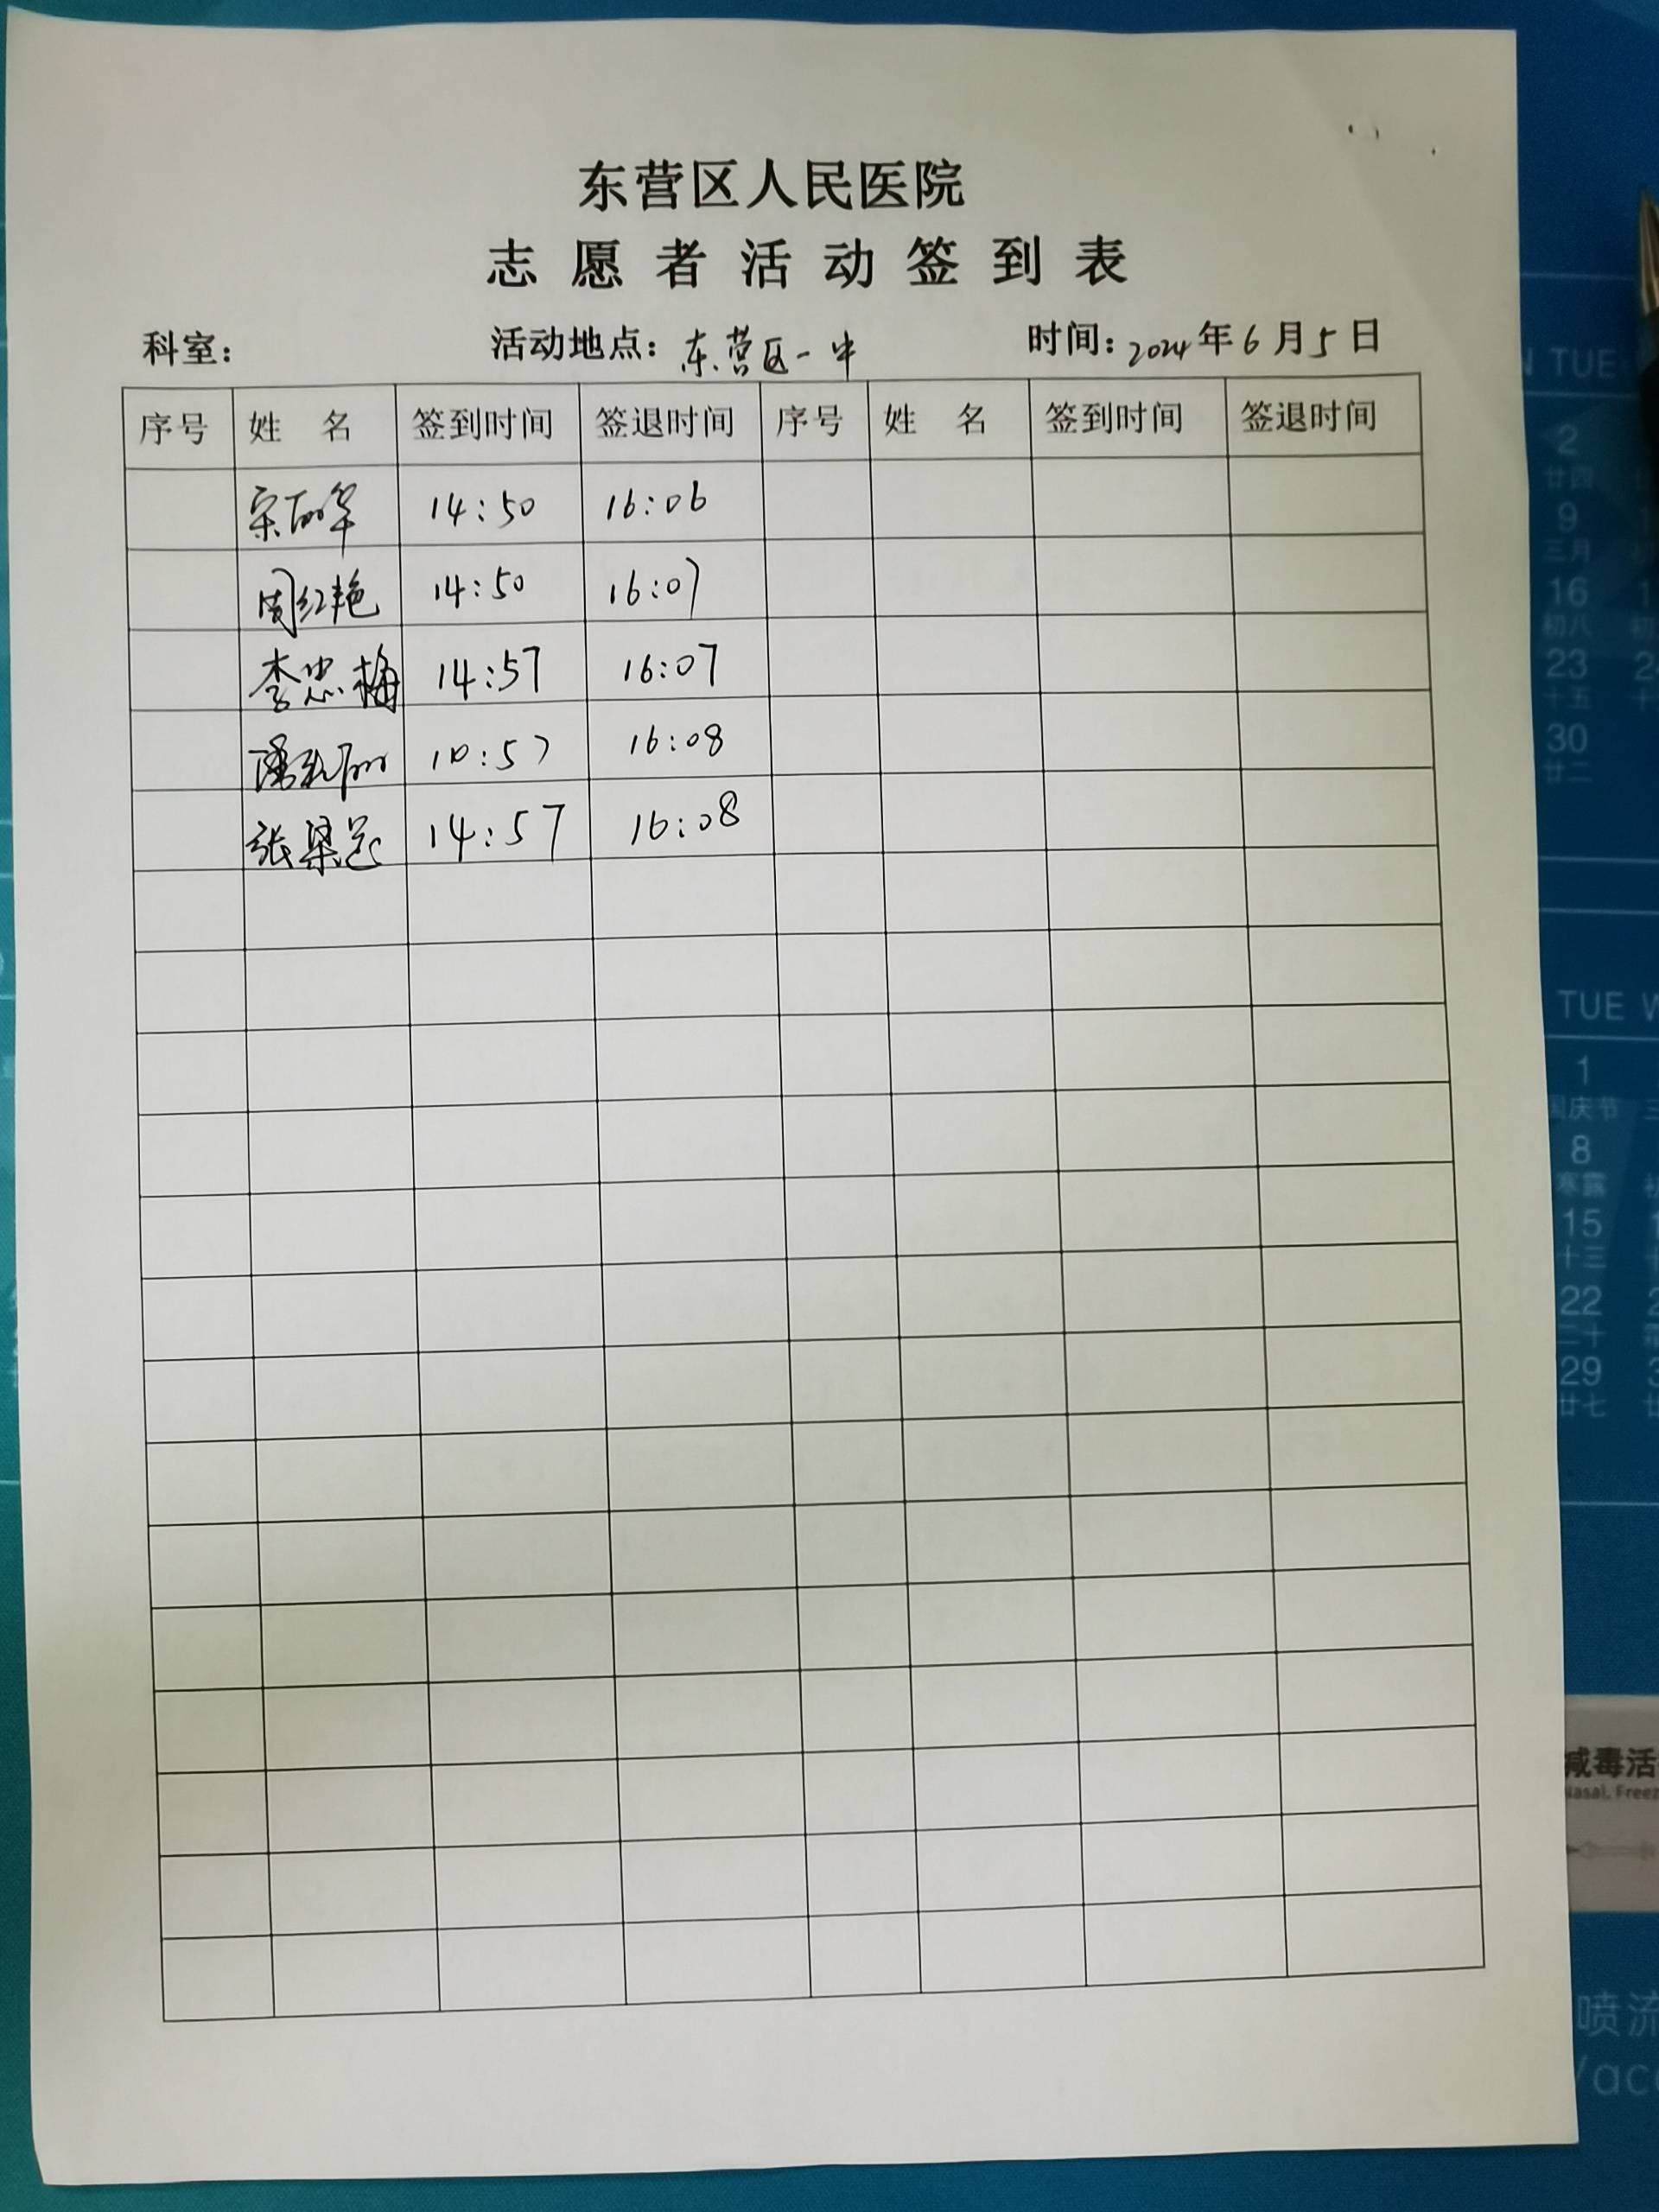 东营区人民医院
志愿者活动签到表
科室： 活动地点：东营区一中 时间：2024年6月5日
序号 姓 名 签到时间 签退时间 序号 姓 名 签到时间 签退时间
宋丽华 14:50 16:06
周红艳 14:50 16:07
李忠梅 14:57 16:07
10:57 16:08
张梁 14:57 16:08
TUE
2
廿四
9
三月
16
初八
23
十五
30
廿二
TUE
1
国庆节
8
寒露
15
十三
22
二十
29
廿七
减毒活
Nasal, Freez
喷流
Vacc